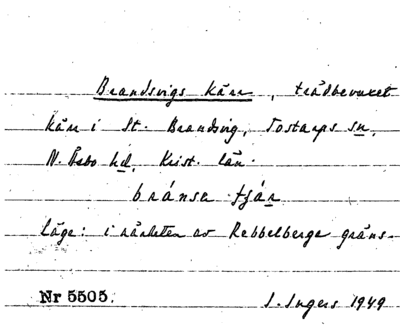 Brandsvigs Kärr, trädbevuxet
kärr i St. Brandsvig, Tostarps sn,
N. Åsbo hd, Krist. län.
bránsa tjár
Läge: i närheten av Rebbelberga gräns.
Nr 5505. I. Ingers 1949